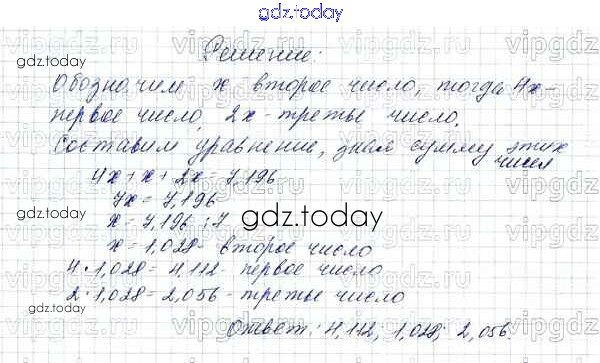 gdz.today
Решение:
Обозначим x второе число, тогда 4x -
первое число, 2x - третье число.
Составим уравнение, зная сумму этих
чисел
4x + x + 2x = 7,196
7x = 7,196
x = 7,196 : 7
x = 1,028 - второе число
4 · 1,028 = 4,112 - первое число
2 · 1,028 = 2,056 - третье число
Ответ: 4,112; 1,028; 2,056.
gdz.today
gdz.today
gdz.today
gdz.today
gdz.today
vipgdz.ru